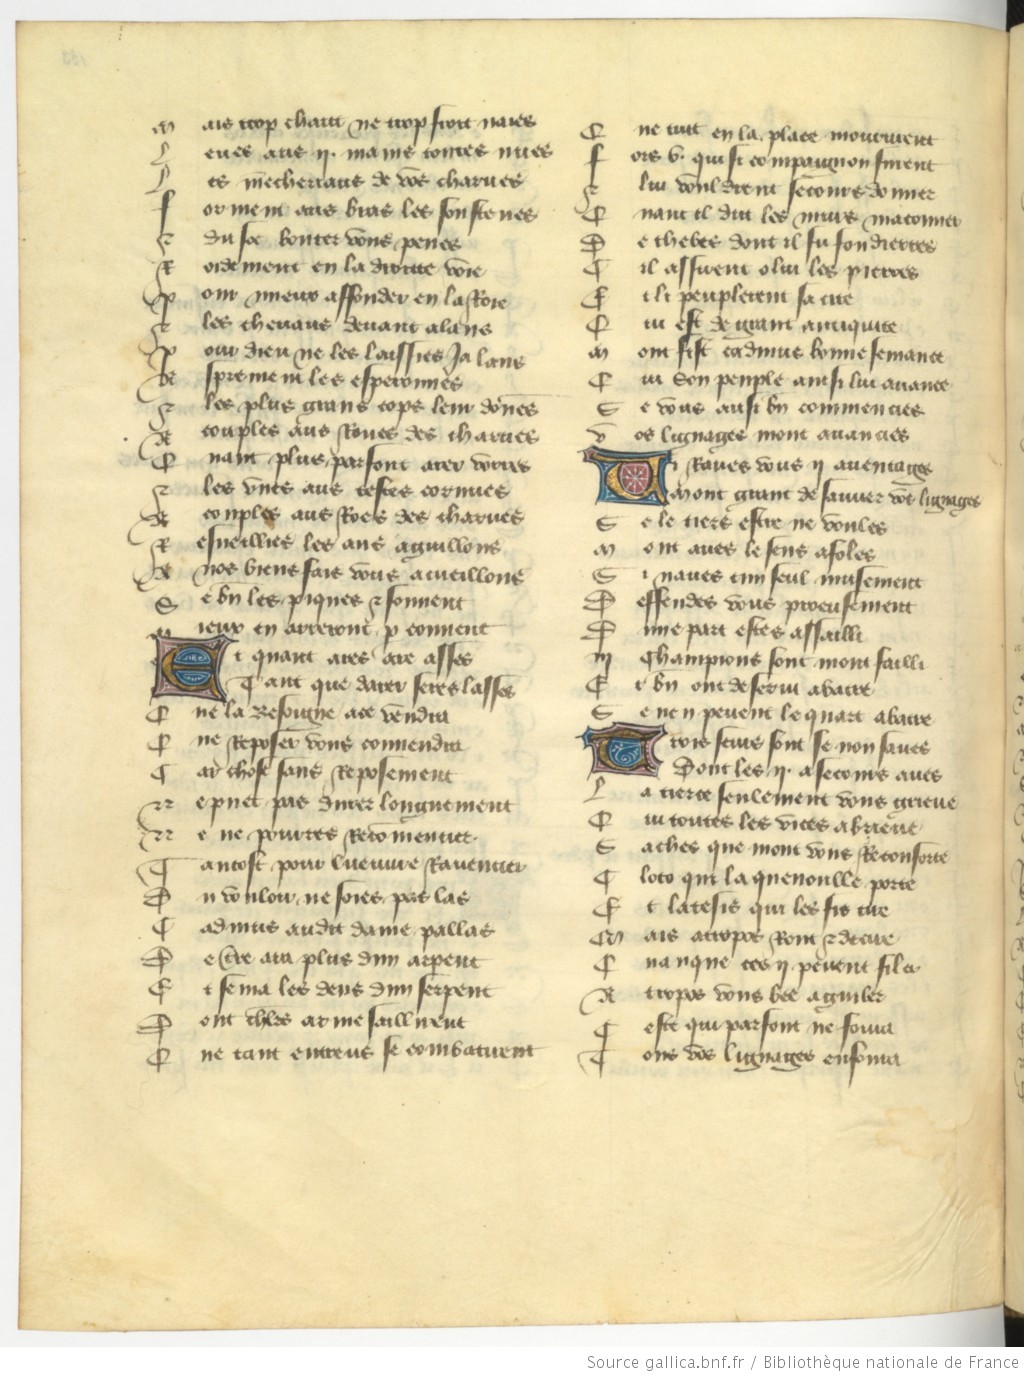 M ais trop chaut ne trop froit naies
L eues aus .ii. mains toutes nues
L es mencheraus de vos charues
F orment aus bras les soustenes
E t du soc bouter vous penes
R oidement en la droite voie
P our mieux affonder en la roie
E t les cheuaus deuant alans
P our dieu ne les laissies ja lans
A sprement les esperonnes
E t les plus grans cops leur donnes
A couples aus roues des charues
Q uant plus parfont arer vorres
E t les vnes aus testes cornues
A couples aus roes des charues
R esueillies les aus aguillons
A nos biens fais vous acueillons
S e bn les piques et souuent
M ieux en arreront p couuent
E t quant ares are asses
T ant que darer seres lasses
Q ue la besoigne ace vendra
Q ue reposer vous conuendra
C ar chose sans reposement
N e puet pas durer longuement
N e ne pourres recommencier
T antost pour lueuure rauencier
D u vouloir ne soies pas las
C admus au dit dame pallas
D e terre ara plus dun arpent
E t sema les dens dun serpent
D ont cheualiers arme saillirent
Q ue tant entreus se combatirent
Q ue tuit en la place mourirent
F ors .v. qui si compaignon furent
E t lui vouldrent secours donner
Q uant il dut les murs maconner
D e thebes dont il fu fondierres
C il assirent o lui les pierres
E t li peuplerent sa cite
Q ui est de grant antiquite
M out fist cadmus bonne semance
Q ui son peuple ainsi lui auance
S e vous ausi bn commencies
V os lignages mont auancies
S i raues vous .ii. auentages
M out grant de sauuer vos lignages
S e le tiers estre ne voules
M out aues le sens afoles
S i naues cun seul nuisement
D effendes vous proeusement
D une part estes assailli
III champions sont mont failli
E t bn ont deserui a batre
S e nen peuent le quart abatre
T rois seurs sont se non saues
Dont les .ii. a secours aues
L a tierce seulement vous grieue
Q ui toutes les vies abrieue
S aches que mont vous reconforte
C loto qui la quenoille porte
E t latesis qui les fis tire
M ais atropos ront et decire
Q uanque ces .ii. peuent filer
A tropos vous bee aguiler
C este qui parfont ne fouira
T ous vos lignages enfouira
Source gallica.bnf.fr / Bibliothèque nationale de France